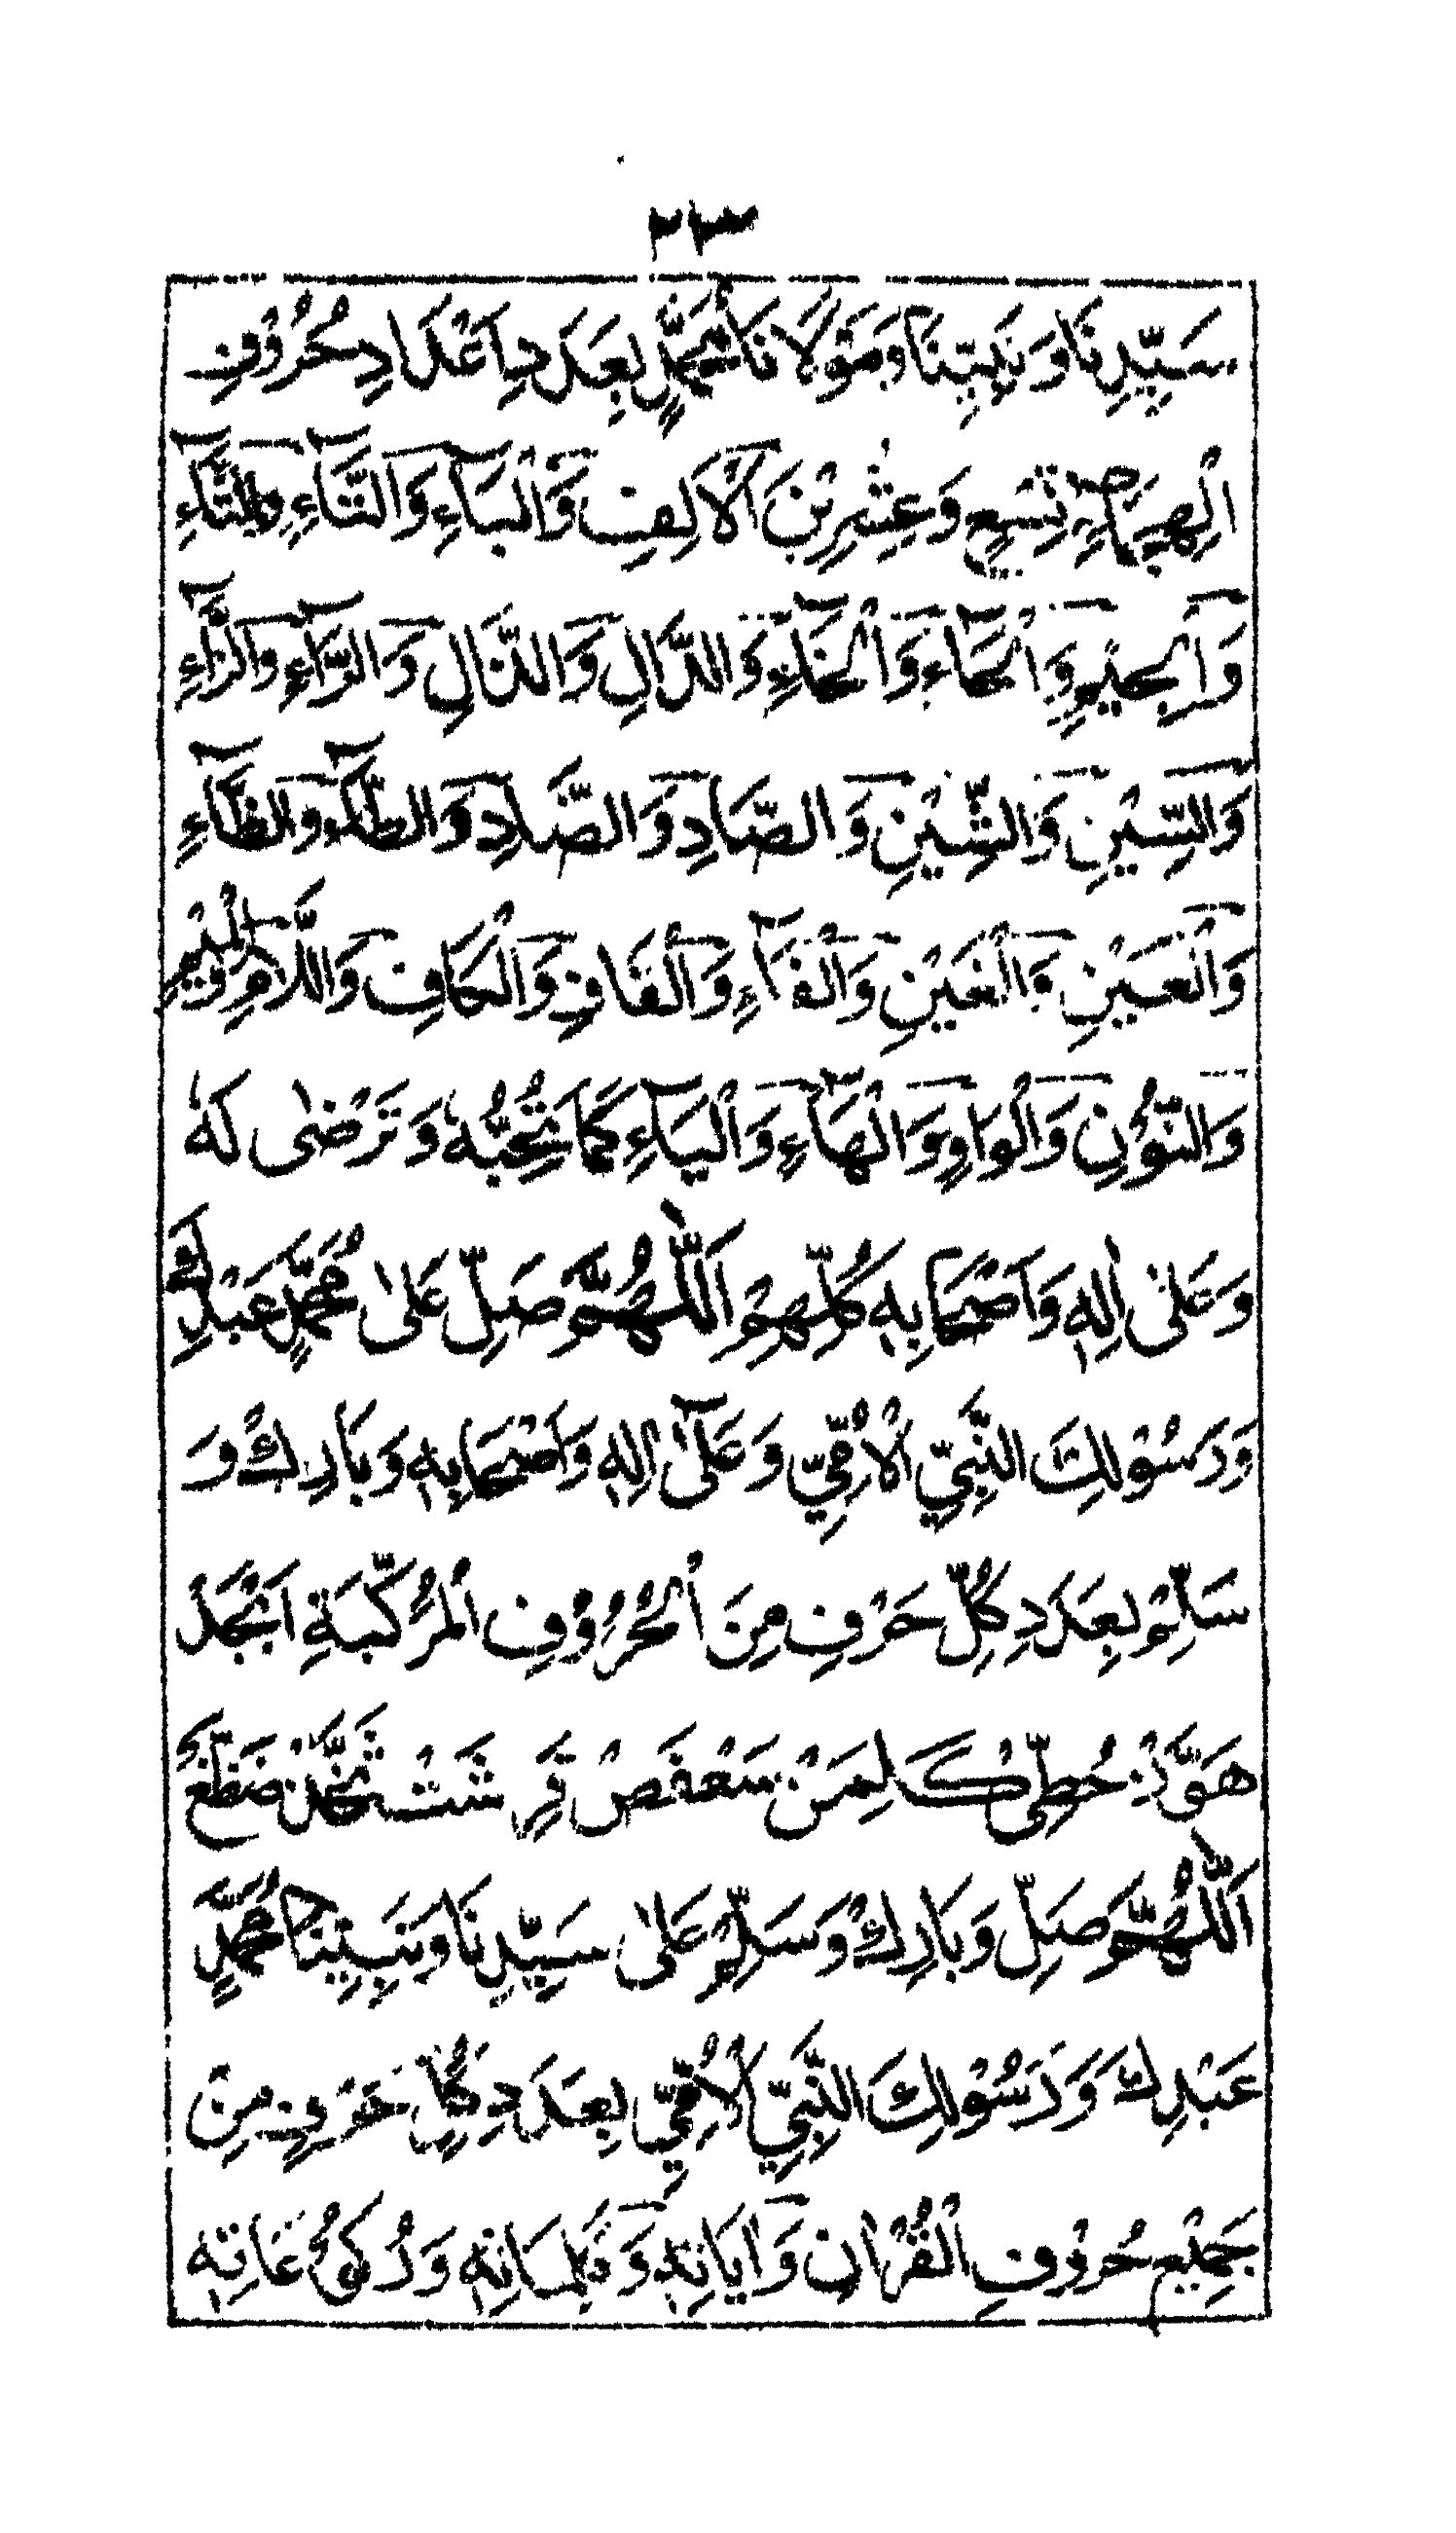 ٢٣
سَيِّدِنَا وَنَبِيِّنَا وَمَوْلَانَا مُحَمَّدٍ بِعَدَدِ اَعْدَادِ حُرُوْفِ
الْهِجَآءِ تِسْعٍ وَعِشْرِيْنَ الْاَلِفِ وَالْبَآءِ وَالتَّآءِ وَالثَّآءِ
وَالْجِيْمِ وَالْحَآءِ وَالْخَآءِ وَالدَّالِ وَالذَّالِ وَالرَّآءِ وَالزَّآءِ
وَالسِّيْنِ وَالشِّيْنِ وَالصَّادِ وَالضَّادِ وَالطَّآءِ وَالظَّآءِ
وَالْعَيْنِ وَالْغَيْنِ وَالْفَآءِ وَالْقَافِ وَالْكَافِ وَاللَّامِ وَالْمِيْمِ
وَالنُّوْنِ وَالْوَاوِ وَالْهَآءِ وَالْيَآءِ كَمَا تُحِبُّهٗ وَتَرْضٰى لَهٗ
وَعَلٰى اٰلِهٖ وَاَصْحَابِهٖ كُلِّهِمْ اَللّٰهُمَّ صَلِّ عَلٰى مُحَمَّدٍ عَبْدِكَ
وَرَسُوْلِكَ النَّبِيِّ الْاُمِّيِّ وَعَلٰٓى اٰلِهٖ وَاَصْحَابِهٖ وَبَارِكْ وَ
سَلِّمْ بِعَدَدِ كُلِّ حَرْفٍ مِنَ الْحُرُوْفِ الْمُرَكَّبَةِ اَبْجَدْ
هَوَّزْ حُطِّىْ كَلِمَنْ سَعْفَصْ قَرِشَتْ ثَخَّذْ ضَظَّغْ
اَللّٰهُمَّ صَلِّ وَبَارِكْ وَسَلِّمْ عَلٰى سَيِّدِنَا وَنَبِيِّنَا مُحَمَّدٍ
عَبْدِكَ وَرَسُوْلِكَ النَّبِيِّ الْاُمِّيِّ بِعَدَدِ كُلِّ حَرْفٍ مِنْ
جَمِيْعِ حُرُوْفِ الْقُرْاٰنِ وَاٰيَاتِهٖ وَكَلِمَاتِهٖ وَرُكُوْعَاتِهٖ